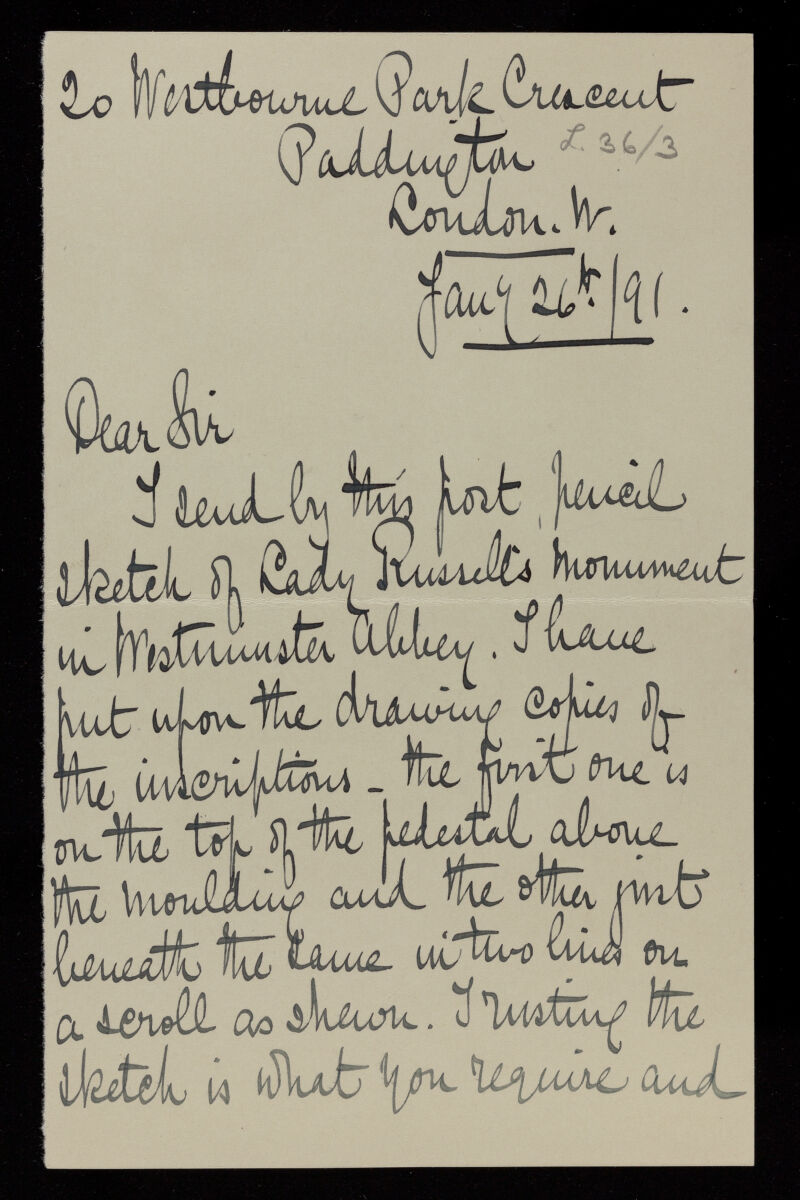 20 Westbourne Park Crescent
Paddington L. 36/3
London. W.
Jany 26th./91.
Dear Sir
I send by this post, pencil
sketch of Lady Russell's monument
in Westminster Abbey. I have
put upon the drawing copies of
the inscriptions - the first one is
on the top of the pedestal above
the moulding and the other just
beneath the same in two lines on
a scroll as shewn. Trusting the
sketch is what you require and